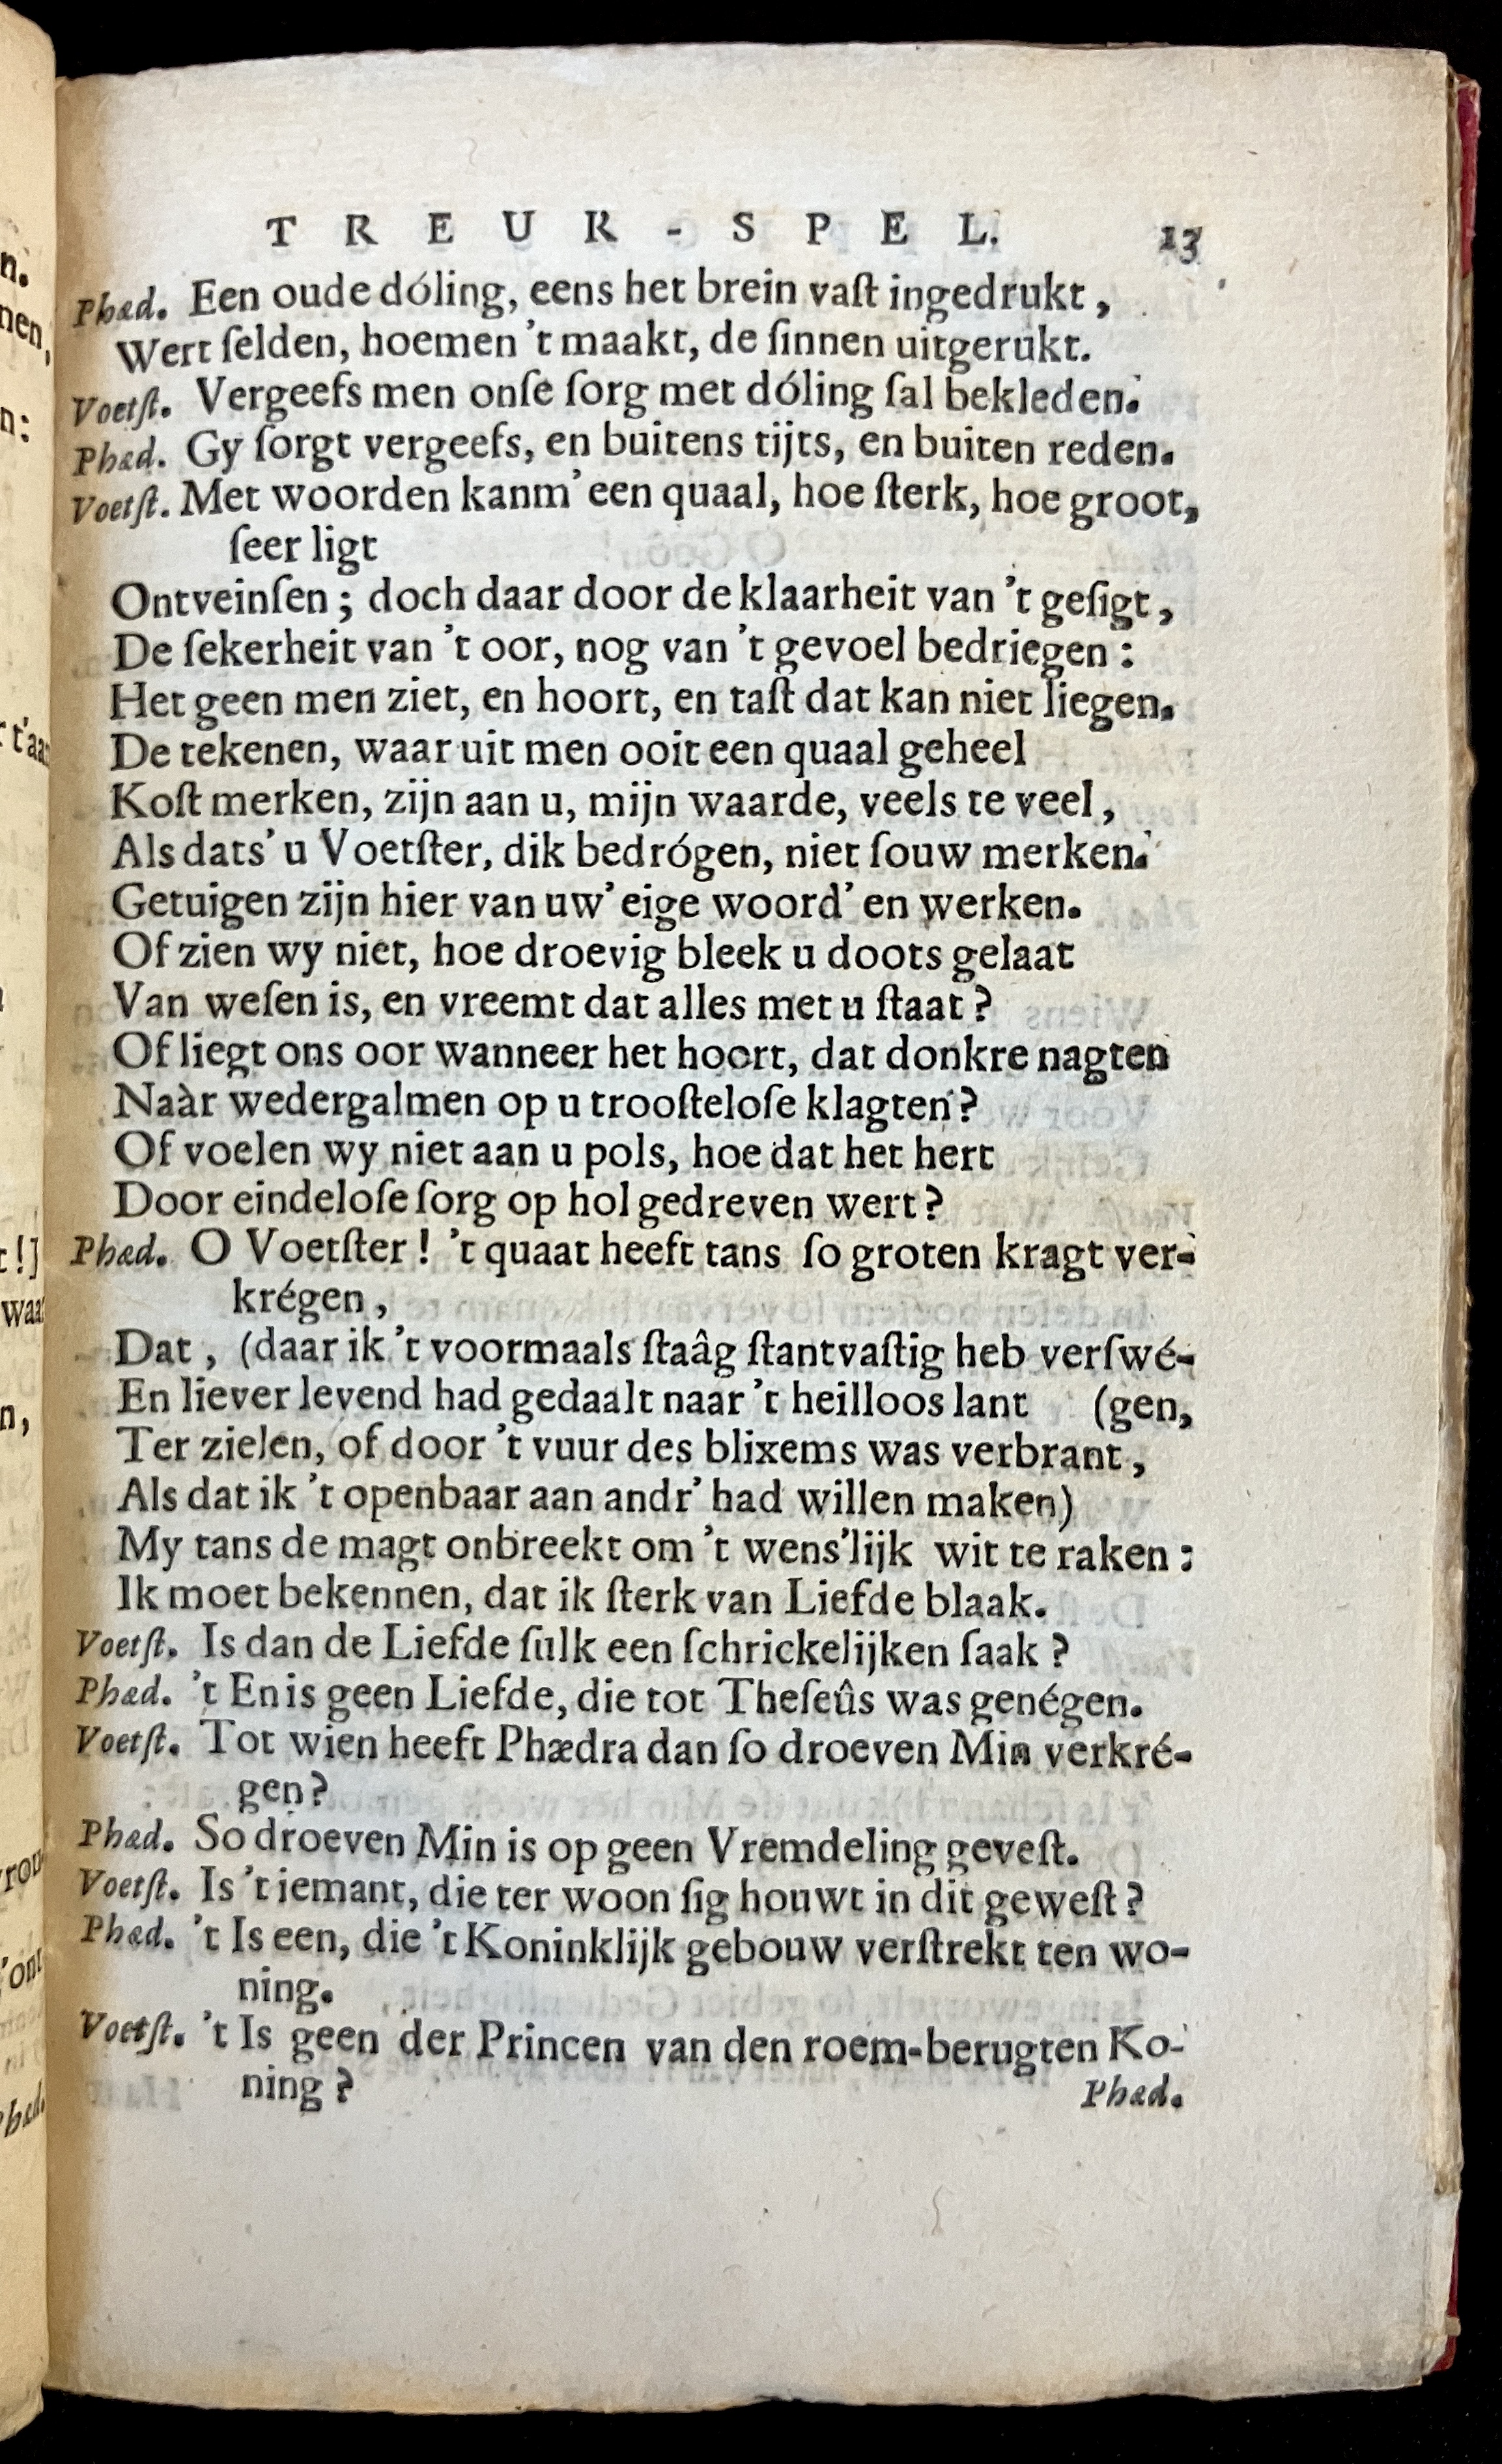 TREUR-SPEL. 13
Phæd. Een oude dóling, eens het brein vaſt ingedrukt,
Wert ſelden, hoemen 't maakt, de ſinnen uitgerukt.
Voetſt. Vergeefs men onſe ſorg met dóling ſal bekleden.
Phæd. Gy ſorgt vergeefs, en buitens tijts, en buiten reden.
Voetſt. Met woorden kanm' een quaal, hoe ſterk, hoe groot,
ſeer ligt
Ontveinſen; doch daar door de klaarheit van 't geſigt,
De ſekerheit van 't oor, nog van 't gevoel bedriegen:
Het geen men ziet, en hoort, en taſt dat kan niet liegen.
De tekenen, waar uit men ooit een quaal geheel
Koſt merken, zijn aan u, mijn waarde, veels te veel,
Als dats' u Voetſter, dik bedrógen, niet ſouw merken.
Getuigen zijn hier van uw' eige woord' en werken.
Of zien wy niet, hoe droevig bleek u doots gelaat
Van weſen is, en vreemt dat alles met u ſtaat?
Of liegt ons oor wanneer het hoort, dat donkre nagten
Naàr wedergalmen op u trooſteloſe klagten?
Of voelen wy niet aan u pols, hoe dat het hert
Door eindeloſe ſorg op hol gedreven wert?
Phæd. O Voetſter! 't quaat heeft tans ſo groten kragt ver-
krégen,
Dat, (daar ik 't voormaals ſtaâg ſtantvaſtig heb verſwé-
En liever levend had gedaalt naar 't heilloos lant (gen,
Ter zielen, of door 't vuur des blixems was verbrant,
Als dat ik 't openbaar aan andr' had willen maken)
My tans de magt onbreekt om 't wens'lijk wit te raken:
Ik moet bekennen, dat ik ſterk van Liefde blaak.
Voetſt. Is dan de Liefde ſulk een ſchrickelijken ſaak?
Phæd. 't En is geen Liefde, die tot Theſeûs was genégen.
Voetſt. Tot wien heeft Phædra dan ſo droeven Min verkré-
gen?
Phæd. So droeven Min is op geen Vremdeling geveſt.
Voetſt. Is 't iemant, die ter woon ſig houwt in dit geweſt?
Phæd. 't Is een, die 't Koninklijk gebouw verſtrekt ten wo-
ning.
Voetſt. 't Is geen der Princen van den roem-berugten Ko-
ning?
Phæd.